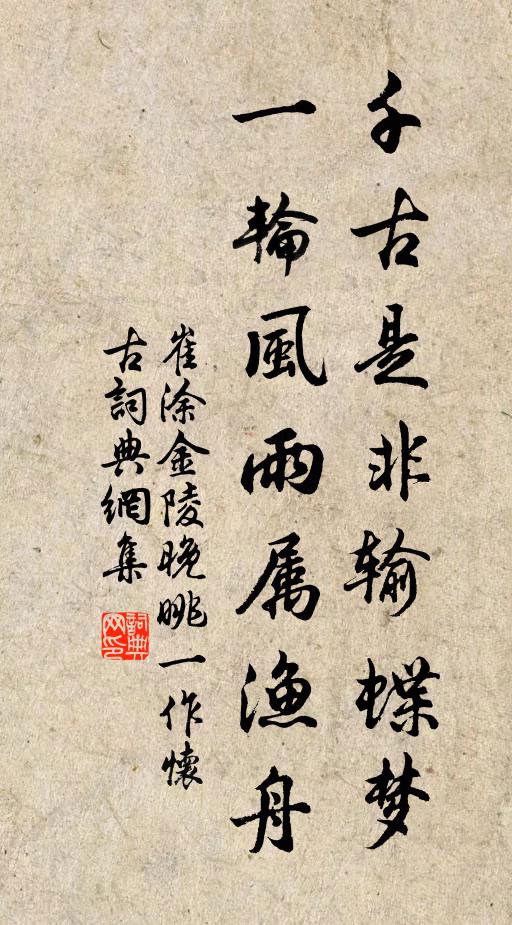 千古是非输蝶梦
一輪風雨属渔舟
崔涂金陵晚眺一作懷
古詞典網集
詞典网印